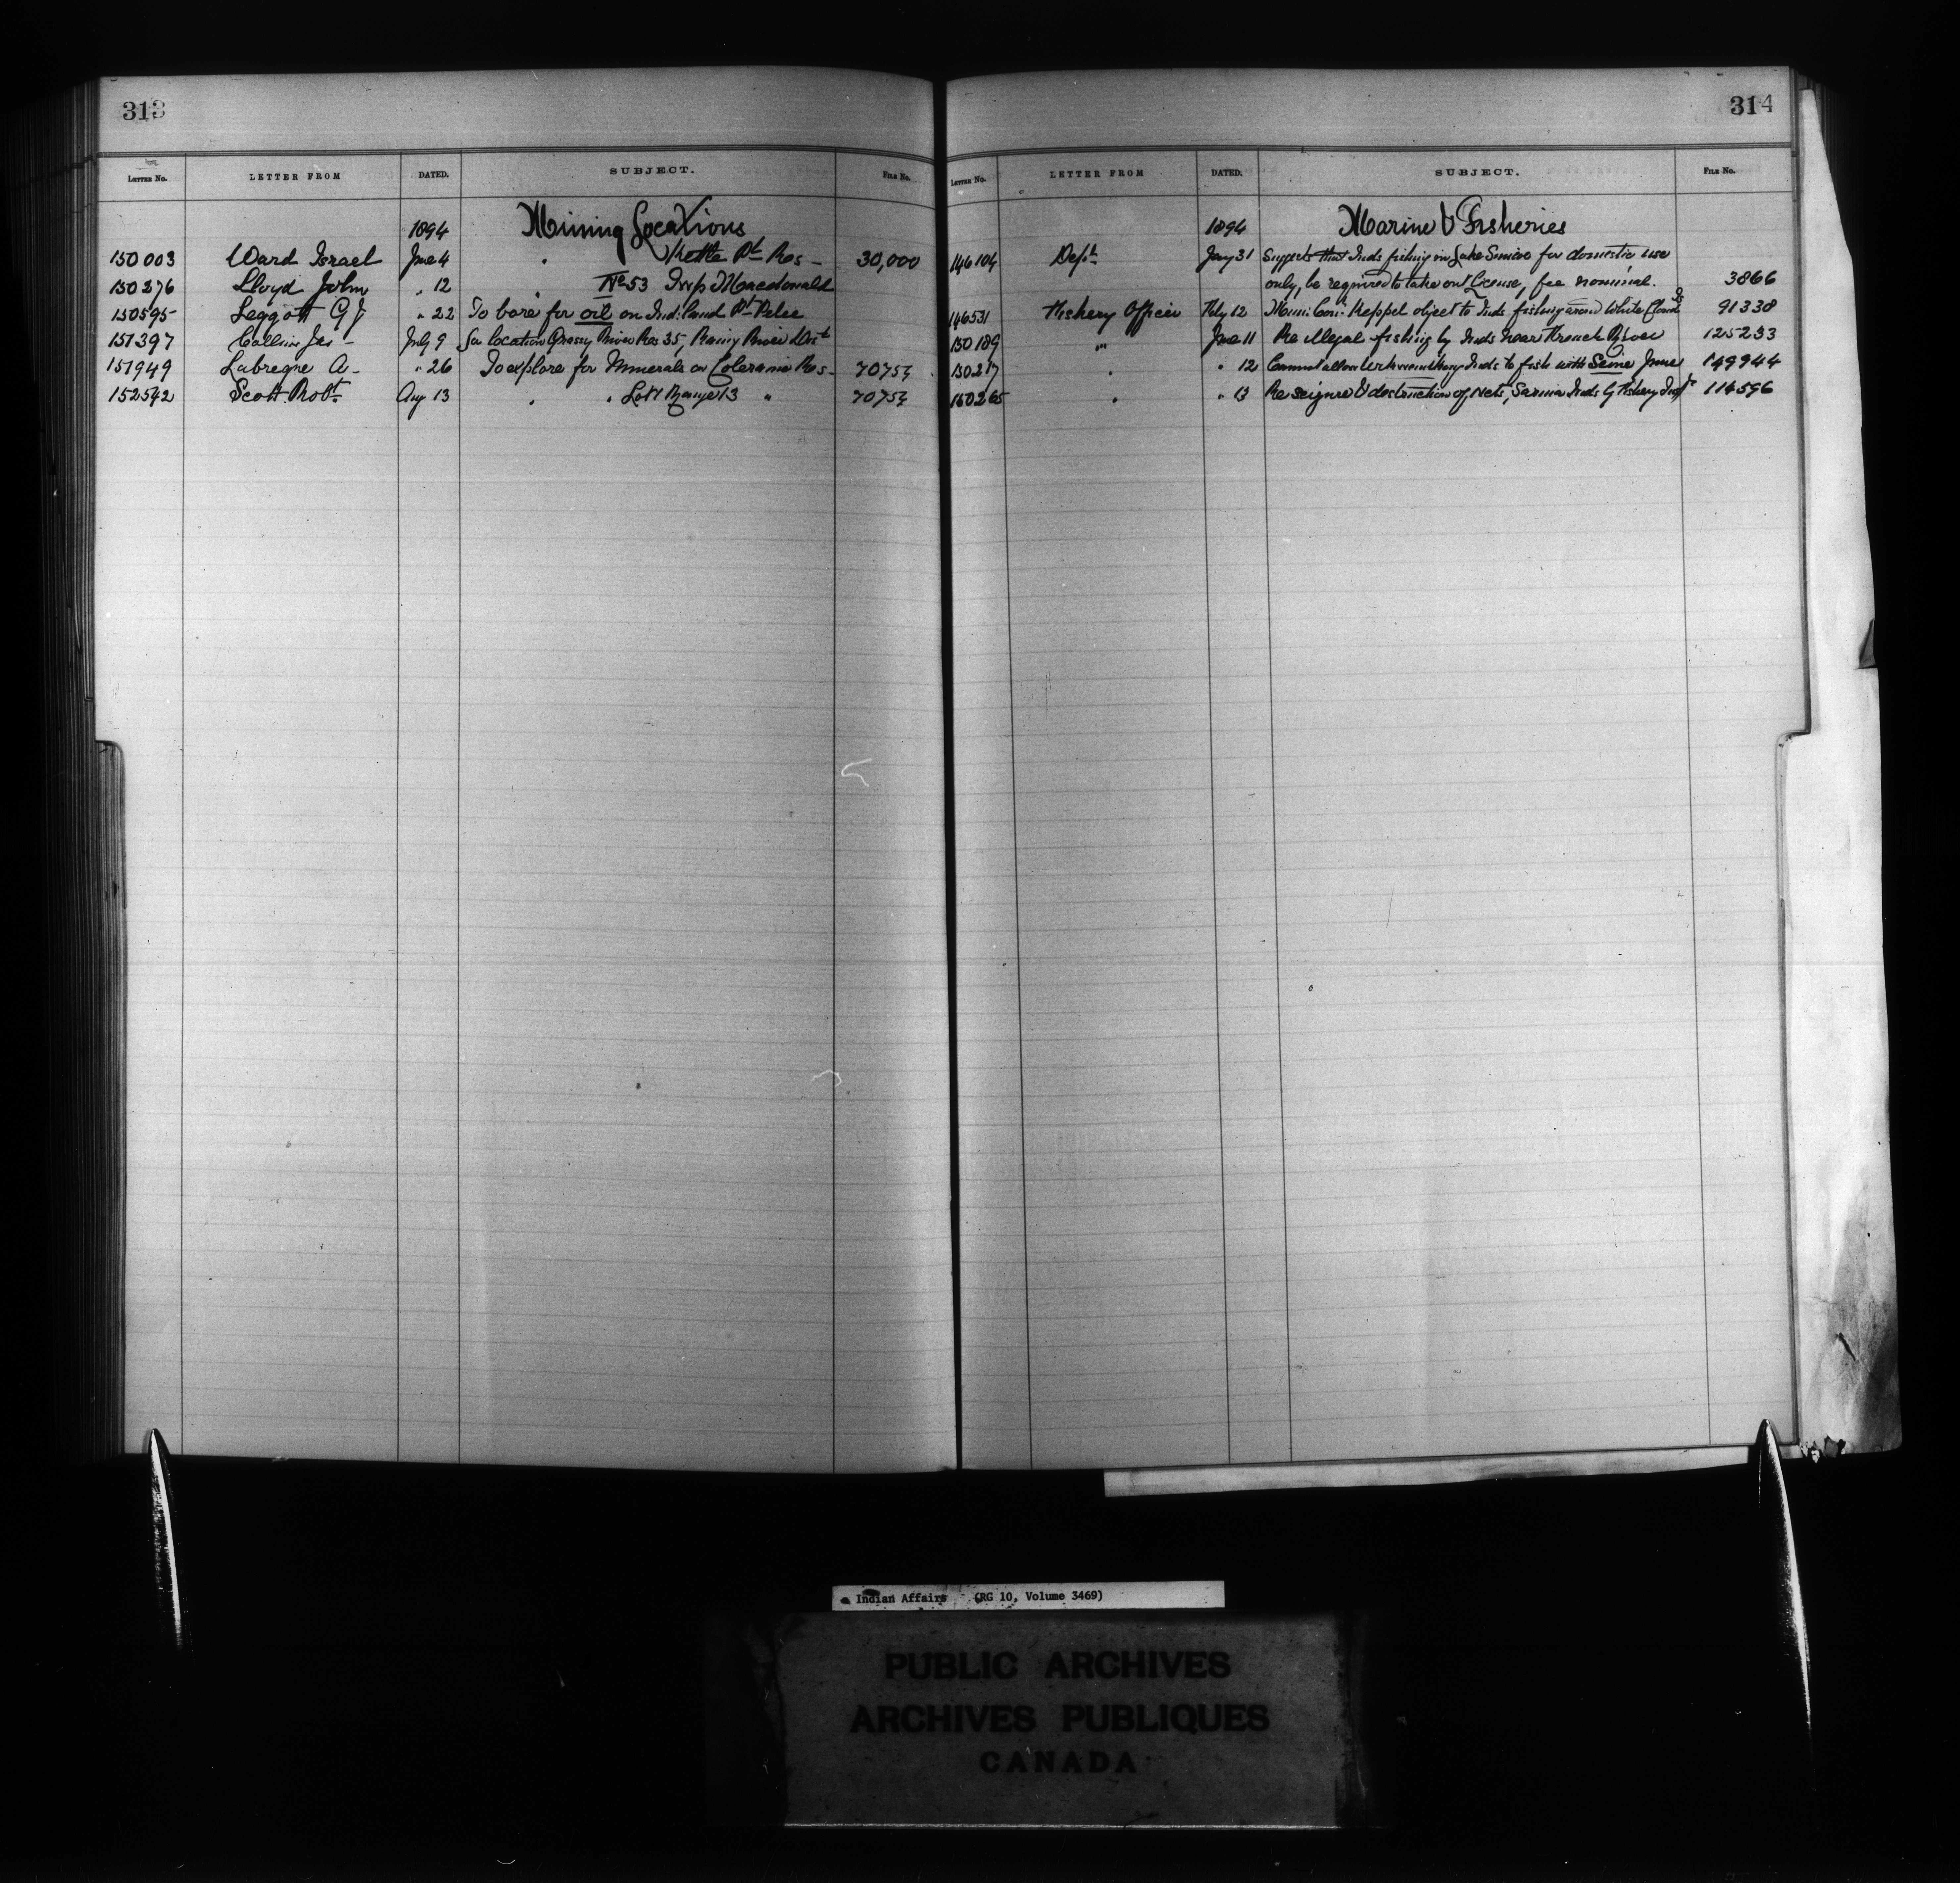 313
LETTER No. LETTER FROM DATED. SUBJECT. FILE No.
1894 Mining Locations
150003 Ward Israel June 4 " Kettle Pt Res - 30,000
150276 Lloyd John " 12 " No 53 Twp Macdonald
150595 Leggott G J " 22 To bore for oil on Ind: land Pt Pelee
151397 Collins Jas - July 9 for location Grassy River Res 35, Rainy River Dist
151949 Labregne A - " 26 To explore for Minerals on Coleraine Res - 70757
152542 Scott Robt Aug 13 " " Lot 1 Range 13 " 70757
314
LETTER No. LETTER FROM DATED. SUBJECT. FILE No.
1894 Marine & Fisheries
146104 Dept Jany 31 Suggests that Inds fishing in Lake Simcoe for domestic use
only, be required to take out License, fee nominal. 3866
146531 Fishery Officer Feby 12 Muni: Con: Keppel object to Inds fishing around White Cloud Is 91338
150189 " June 11 Re illegal fishing by Inds near French River 125233
150217 " " 12 Cannot allow Inds to fish with Seine June 149944
150265 " " 13 Re seizure & destruction of nets, Sarnia Inds by Fishery Inspr 114596
Indian Affairs (RG 10, Volume 3469)
PUBLIC ARCHIVES
ARCHIVES PUBLIQUES
CANADA